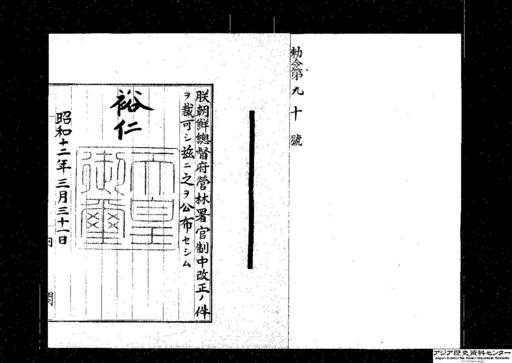 勅令第九十號
朕朝鮮總督府營林署官制中改正ノ件
ヲ裁可シ玆ニ之ヲ公布セシム
裕仁
天皇
御璽
昭和十二年三月三十一日
内閣
アジア歴史資料センター
Japan Center for Asian Historical Records